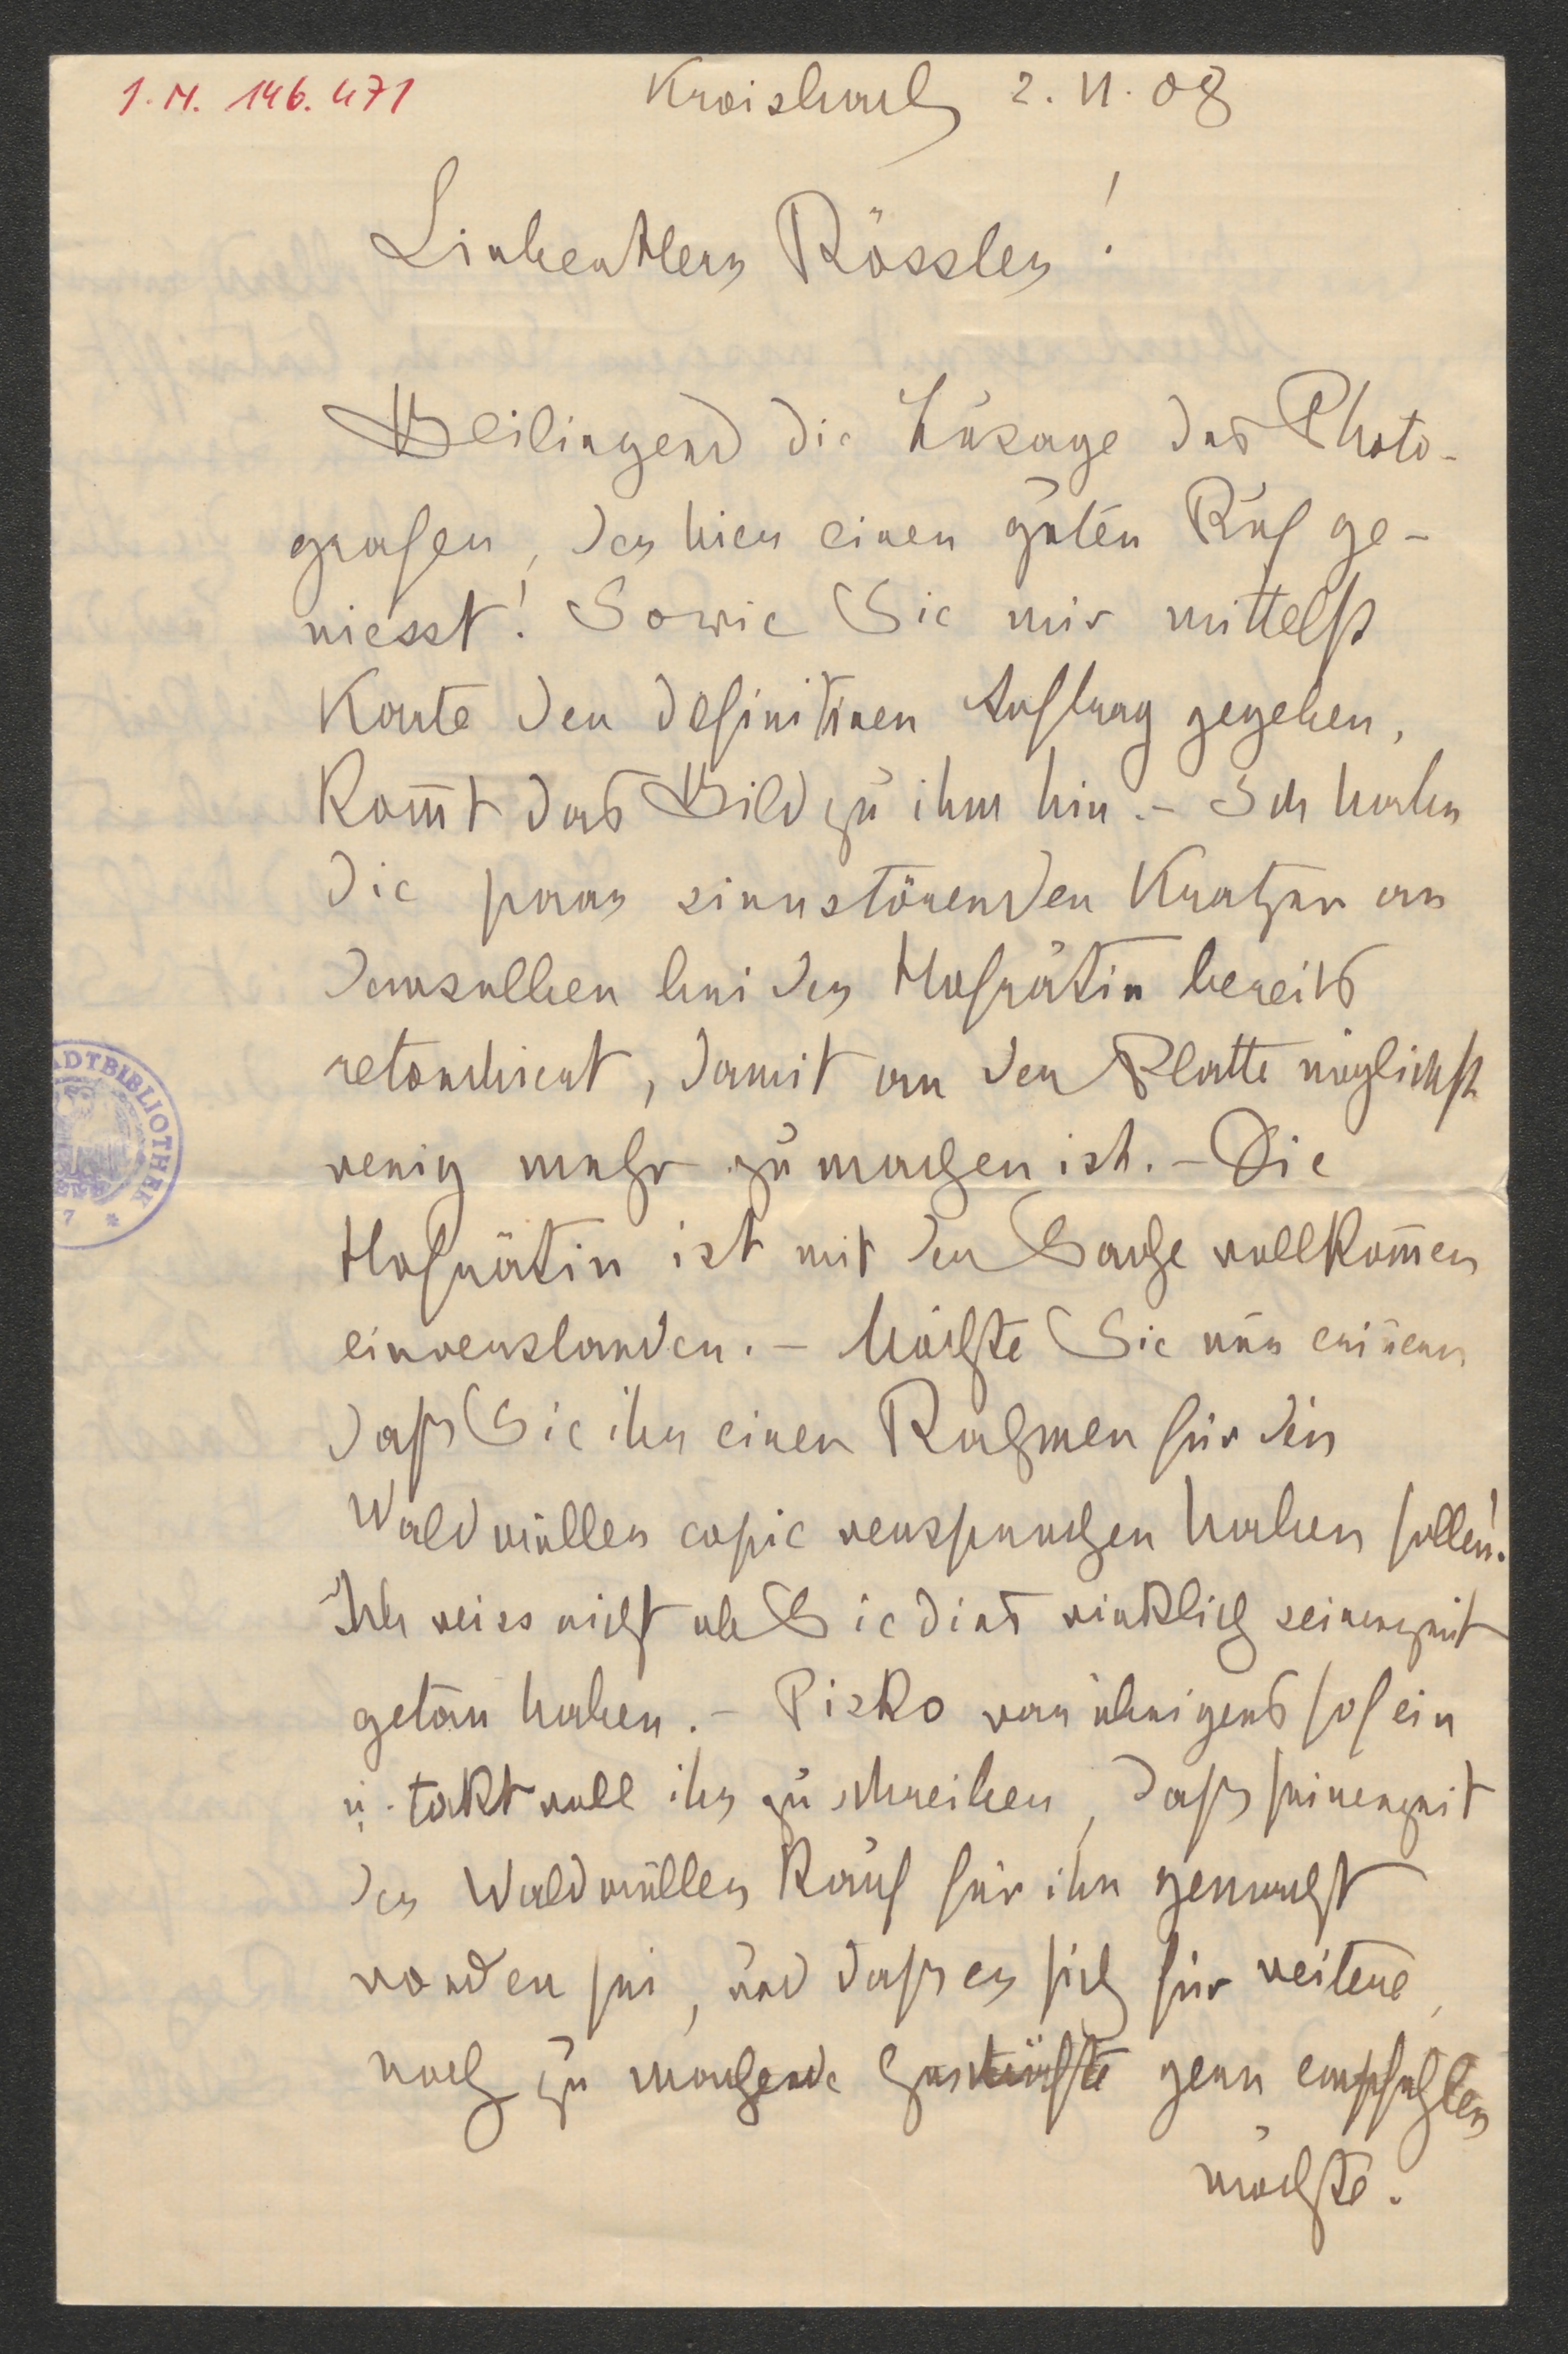 I. N. 146.471
Kroisbach 2. II. 08
Lieber Herr Rössler!
Beiliegend die Zusage des Photo-
grafen, der hier einen guten Ruf ge-
niesst! Sowie Sie mir mittelst
Karte den definitiven Auftrag gegeben,
kom̄t das Bild zu ihm hin. – Ich habe
die paar sinnstörenden Kratzer an
demselben bei der Hofrätin bereits
retouchiert, damit an der Platte möglichst
wenig mehr zu machen ist. – Die
Hofrätin ist mit der Sache vollkom̄en
einverstanden. – Möchte Sie nur erin̄ern
daß Sie ihr einen Rahmen für die
Waldmüller copie versprochen haben sollen!
Ich weiss nicht ob Sie dies wirklich seinerzeit
getan haben. – Pisko war übrigens so fein
u. taktvoll ihr zu schreiben, daß seinerzeit
der Waldmüller Kauf für ihn gemacht
worden sei, und daß er sich für weitere,
noch zu machende Geschäfte gern empfehlen
möchte.
ADTBIBLIOTHEK
7 *